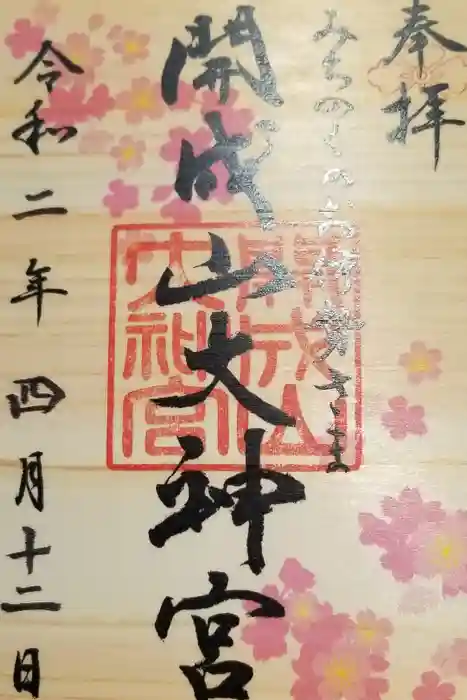 奉拝
みちのくのお伊勢さま
開成山大神宮
開成山
大神宮
令和二年四月十二日